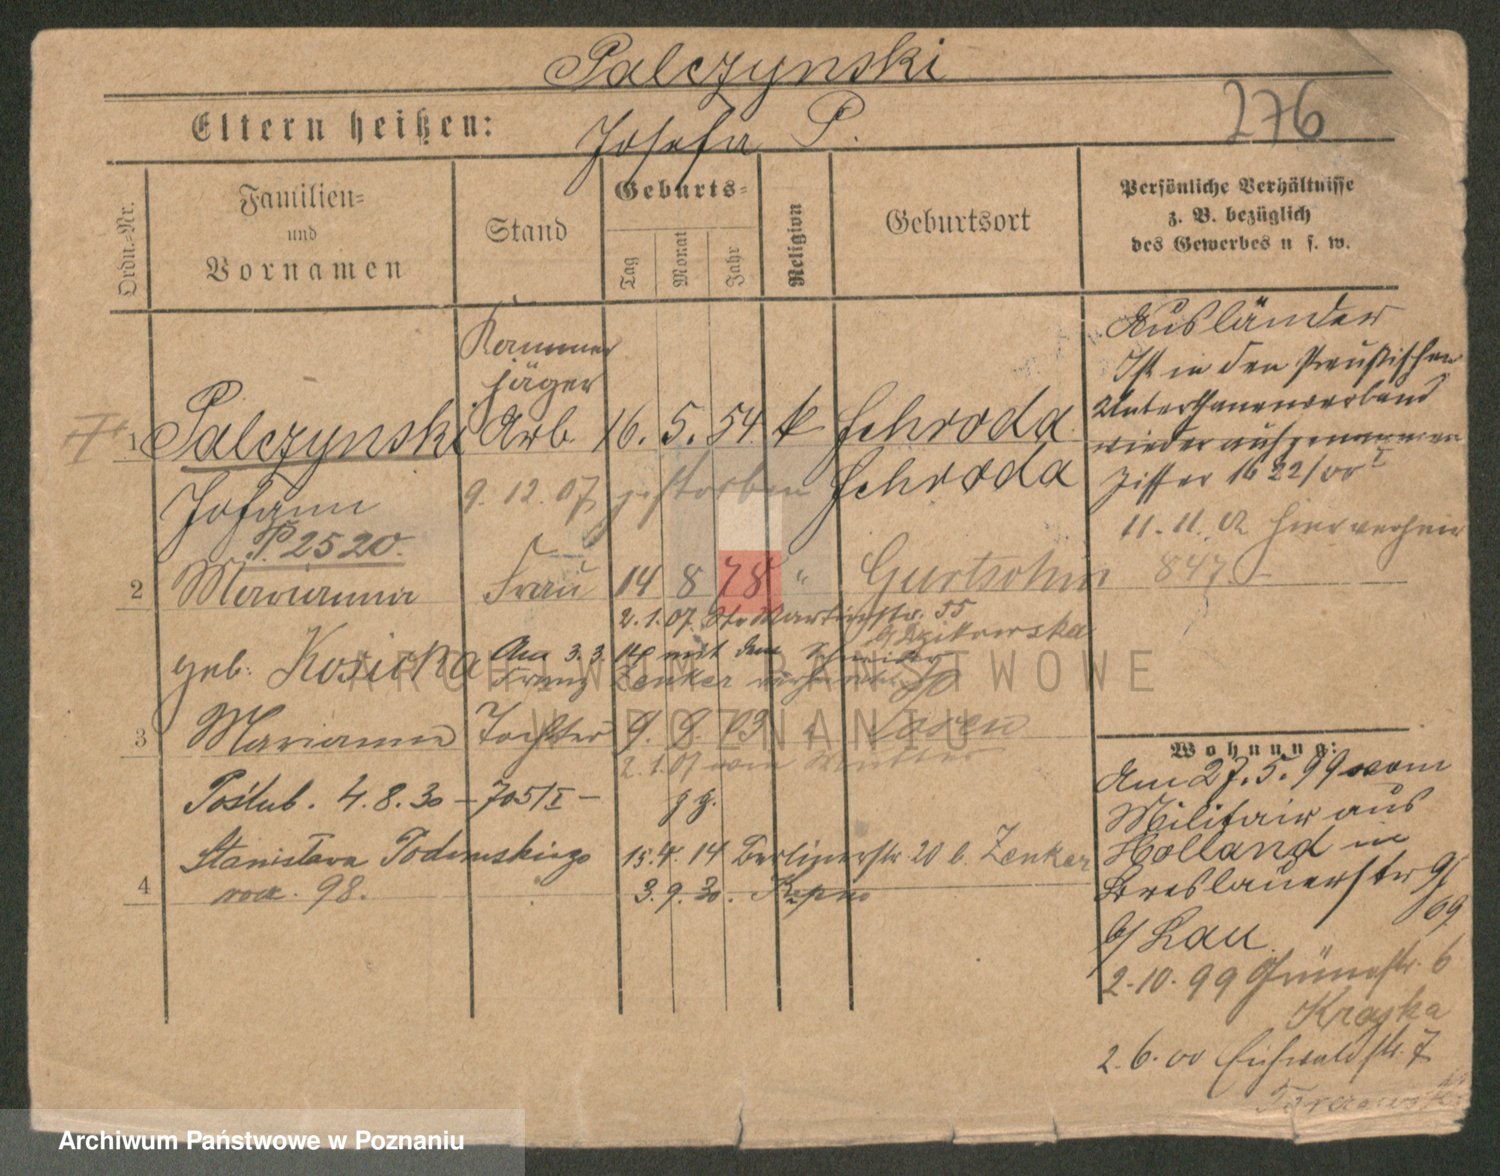 Palczynski
Eltern heißen: Josefa P.
276
Ordn.-Nr.
Familien-
und
Vornamen
Stand
Geburts-
Tag
Monat
Jahr
Religion
Geburtsort
Persönliche Verhältnisse
z. B. bezüglich
des Gewerbes u s. w.
Kammer
jäger
1 Palczynski Arb. 16. 5. 54 k Schroda
Johann 9.12.07 gestorben Schroda
P 2520.
Ausländer
Ist in den Preußischen
Unterthanenverband
wiederaufgenommen
Ziffer 16 22/00 I
11.11.02 hier verheir
847
2 Marianna Frau 14 8 78 " Gurtschin
2.1.07. St. Martinstr. 55
b/ Dzikowska
geb. Kosicka Am 3.3.14 mit dem Schmied
Franz Zenker verheiratet
3 Marianna Tochter 9. 9. 03 " Posen
2.1.07 wie Mutter
Poślub. 4.8.30 - 705/I -
Stanisława Podemskiego 15.4.14 Berlinerstr 20 b. Zenker
4 rocz. 98. 3.9.30. Kępno
Wohnung:
Am 27.5.99 vom
Militair aus
Holland in
Breslauerstr 9/
09
b/ Lau
2.10.99 Grünestr. 6
Krajka
2.6.00 Eichwaldstr. 7
ARCHIWUM PAŃSTWOWE
W POZNANIU
Archiwum Państwowe w Poznaniu